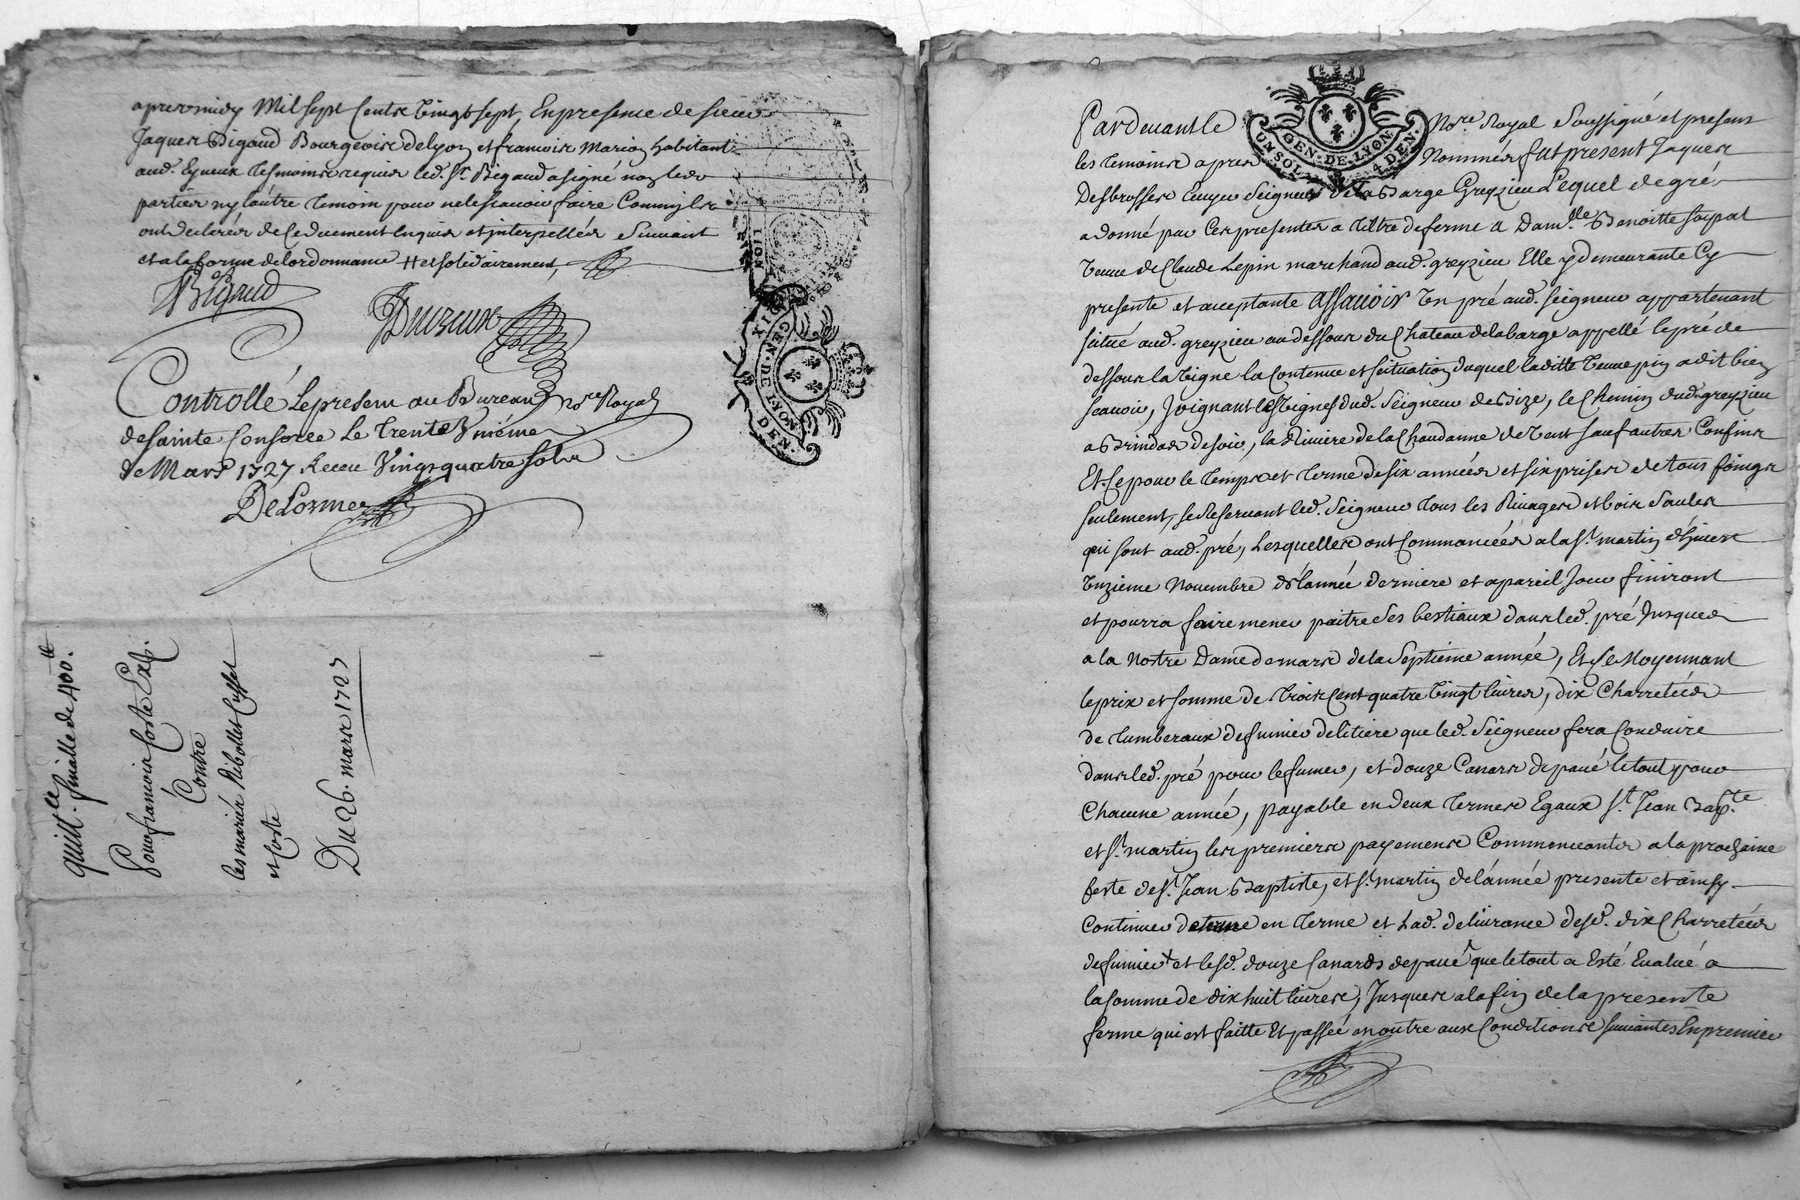 apres midy Mil sept Cents vingt sept, En presence de sieur
Jaques Bigaud Bourgeois de lyon et francois Marion habitant
aud. Eyueux tesmoins requis led. Sr. Bigaud a signé non les
parties ny l'autre temoin pour ne le scavoir faire Comm'ils
ont declarés de Ce duement enquis et interpellés Suivant
et a la forme de l'ordonnance # et solidairement,
Bigaud
Duvzeux
nore Royal
Controllé Le present au Bureau
de Sainte Consorce Le trente Unième
de Mars 1727 Receu Vingt quatre sols
DeLorme
quitt.ce finalle de 400.tt
Pour francois Coste
Contre
les mariés Ribollet
et Coste
Du 26. mars 1727
GEN·DE·LYON
DEN.
LION
Pardevant le Nore. Royal Soussigné et presens
les temoins apres Nommés fut present Jaques
Desbrosses Ecuyer Seigneur de la Barge Greyzieu Lequel de gré
a donné par Ces presentes a tiltre de ferme a Dam.lle Benoitte
veuve de Claude Lepin marchand aud. greyzieu Elle y demeurante Cy
presente et acceptante assavoir Un pré aud. seigneur appartenant
scitué aud. greyzieu au dessous du Chateau de la barge appellé le pré de
dessous la vigne la Contenue et scituation duquel laditte veuve pin a dit bien
scavoir, Joignant les Vignes dud. Seigneur de Bize, le Chemin dud. greyzieu
a Brindas de soir, la Riviere de la Chaudanne de vent sauf autres Confins
Et Ce pour le temps et terme de six années et six prises de tous foings
seulement, se Reservant led. Seigneur tous les Rivages et bois Saules
qui sont aud. pré, Lesquelles ont Commancées a la St. martin d'hiver
Unzieme Novembre de l'année derniere et a pareil Jour finiront
et pourra faire mener paitre Ses bestiaux dans led. pré Jusques
a la Nostre Dame de mars de la Septieme année, Et Ce Moyennant
le prix et somme de trois Cent quatre vingt livres, dix Charretées
de tumberaux de fumier de litiere que led. Seigneur fera Conduire
dans led. pré pour le fumer, et douze Canars de paué le tout pour
Chacune année, payable en deux termes Egaux St. Jean Bap.te
et St. martin les premiers payemens Commenceants a la prochaine
feste de St. Jean Baptiste, et St. martin de l'année presente et ainsy
Continuer de terme en terme et Lad. delivrance desd. dix Charretées
de fumier et lesd. douze Canards de paué que le tout a Esté Evalué a
la somme de dix huit livres, Jusques a la fin de la presente
ferme qui est faitte Et passée en outre aux Conditions suivantes En premier
GEN·DE·LYON
DEN.